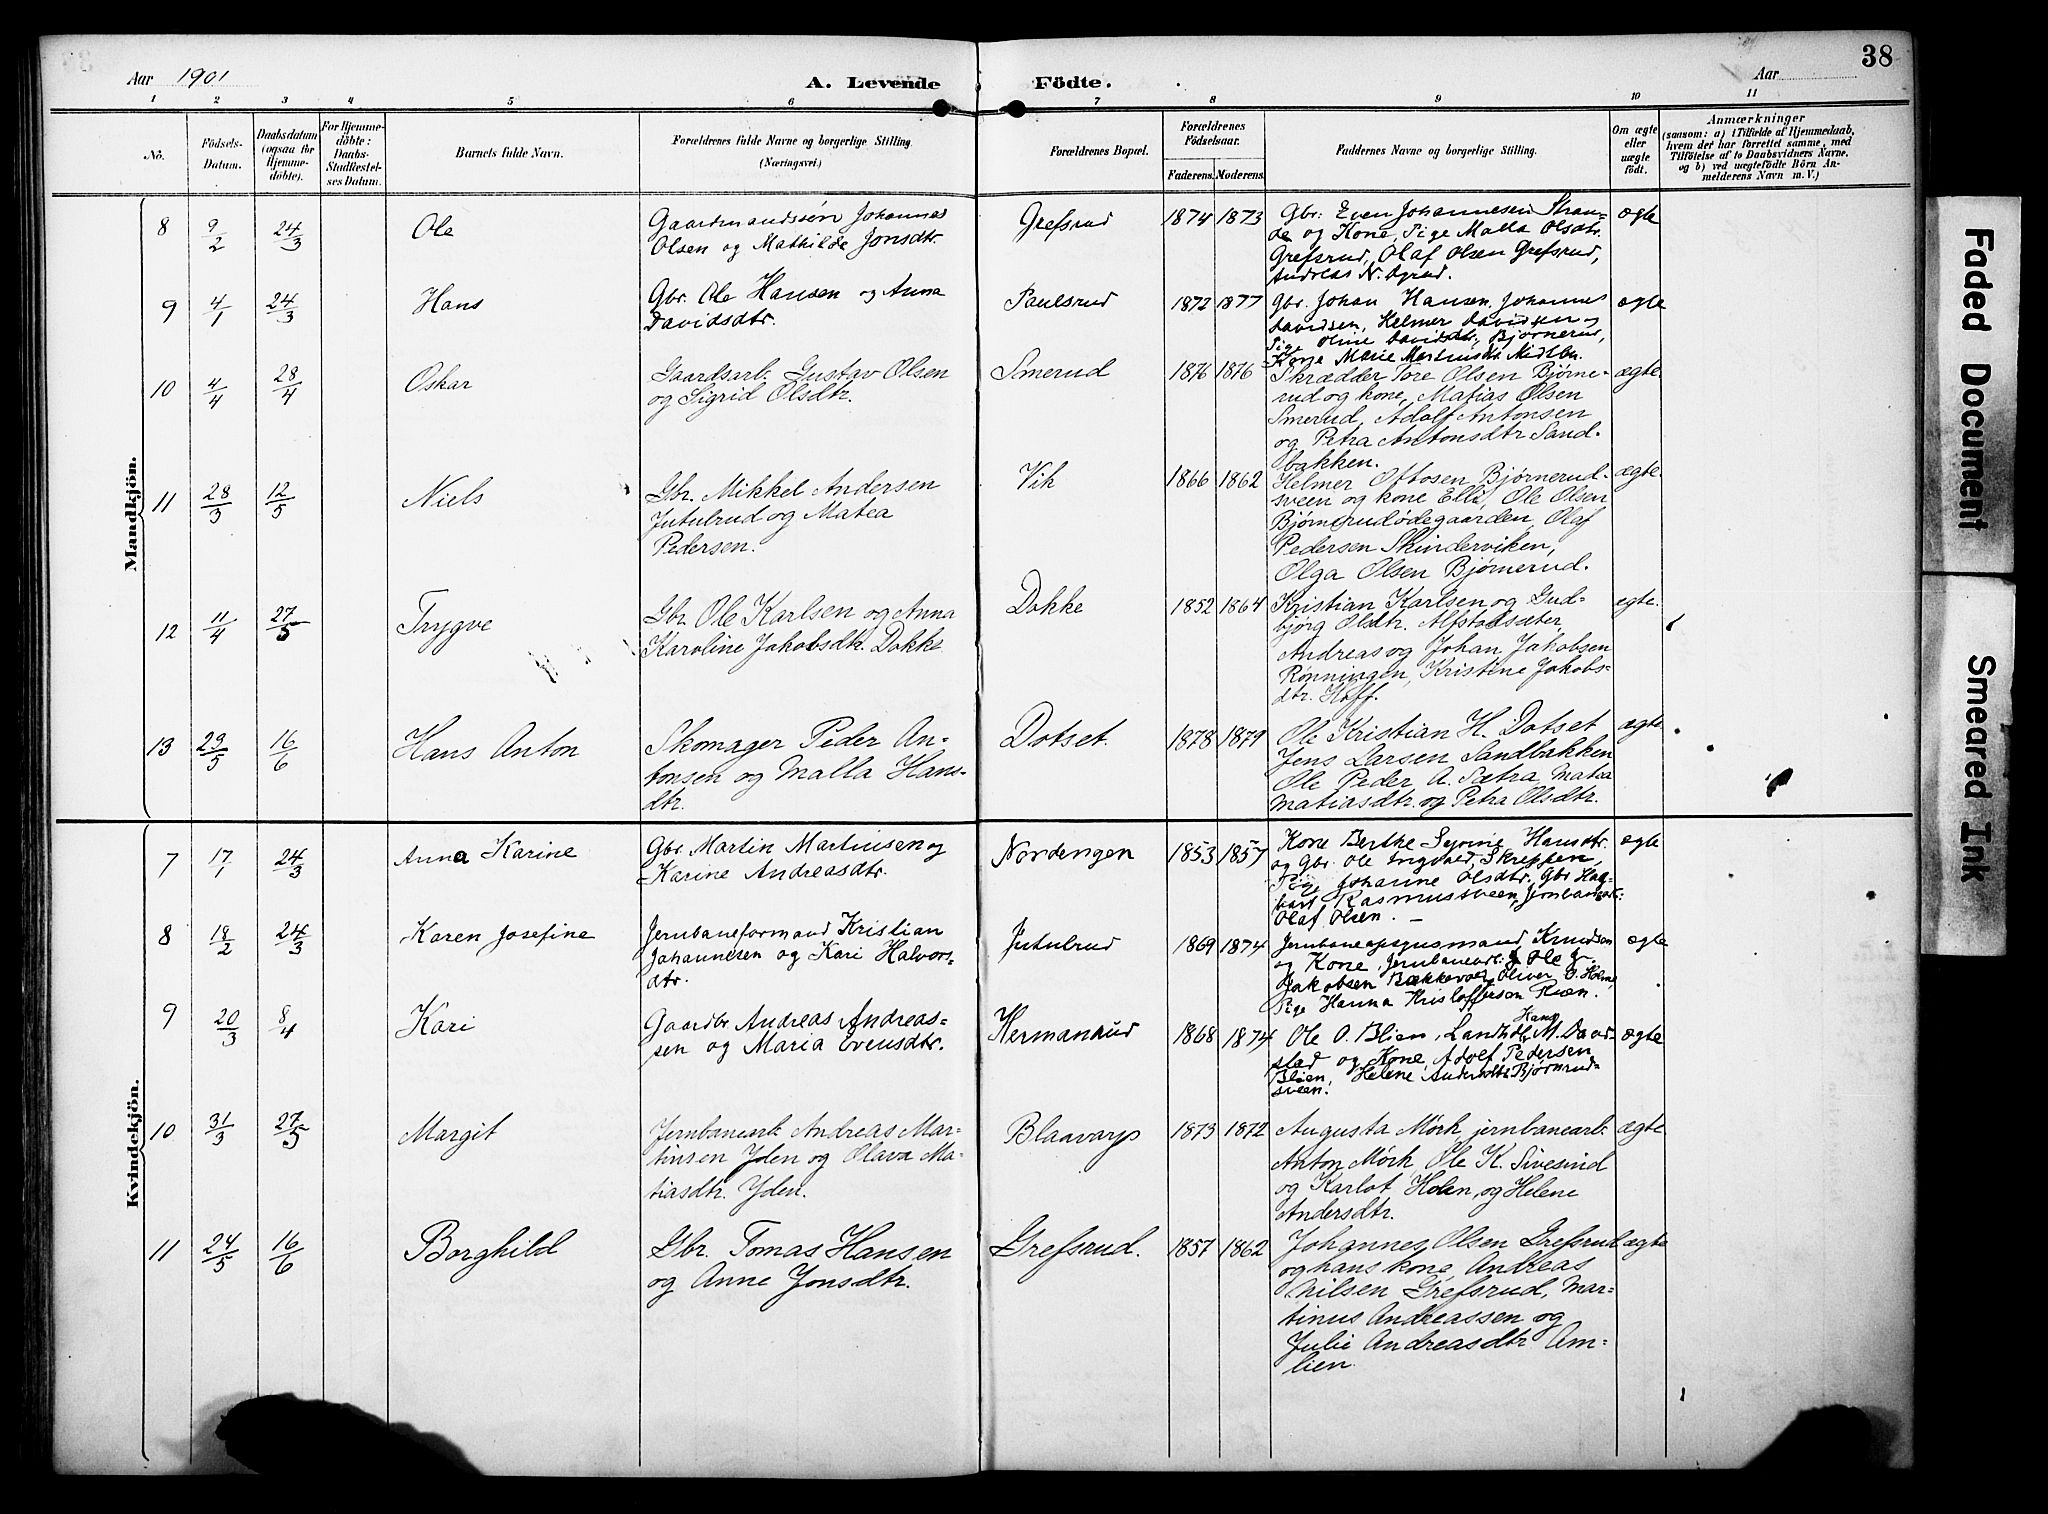 38
Aar 1901 A. Levende Födte. Aar
1 2 3 4 5 6 7 8 9 10 11
No.
Födsels-
Datum.
Daabsdatum
(ogsaa for
Hjemme-
döbte).
For Hjemme-
döbte:
Daabs-
Stadfæstel-
ses Datum.
Barnets fulde Navn.
Forældrenes fulde Navne og borgerlige Stilling.
(Næringsvei.)
Forældrenes Bopæl.
Forældrenes
Födselsaar.
Faderens. Moderens.
Faddernes Navne og borgerlige Stilling.
Om ægte
eller
uægte
födt.
Anmærkninger
(saasom: a) i Tilfælde af Hjemmedaab,
hvem det har forrettet samme, med
Tilföielse af to Daabsvidners Navne.
og b) ved uægtefödte Börn An-
melderens Navn m. V.)
Mandkjön.
8 9/2 24/3 Ole
Gaardmandssøn Johannes
Olsen og Mathilde Jonsdtr.
Grefsrud 1874 1873
Gbr. Even Johannesen Stran-
de og Kone, Pige Malla Olsdtr.
Grefsrud, Olaf Olsen Grefsrud,
Andreas N.
ægte
9 4/1 24/3 Hans
Gbr. Ole Hansen og Anna
Davidsdtr.
Paulsrud 1872 1877
Gbr. Johan Hansen, Johannes
Davidsen, Helmer Davidsen og
Pige Oline Davidsdtr. Bjørnerud,
Kone Marie Martinusdtr
ægte
10 4/4 28/4 Oskar
Gaardsarb. Gustav Olsen
og Sigrid Olsdtr.
Smerud 1876 1876
Skrædder Tore Olsen Bjørne-
rud og kone, Matias Olsen
Smerud, Adolf Antonsen
og Petra Antonsdtr Sand-
bakken.
ægte.
11 28/3 12/5 Niels
Gbr. Mikkel Andersen
Jutulrud og Matea
Pedersen.
Vik 1866 1862
Helmer Ottosen Bjørnerud-
sveen og kone Elli, Ole Olsen
Bjørnerudødegaarden, Olaf
Pedersen Skinderviken,
Olga Olsen Bjørnerud.
ægte.
12 11/4 27/5 Trygve
Gbr Ole Karlsen og Anna
Karoline Jakobsdtr. Dokke
Dokke 1852 1864
Kristian Karlsen og Gud-
bjørg Olsdtr. Alfstadsæter,
Andreas og Johan Jakobsen
Rønningen, Kristine Jakobs-
dtr. Hoff.
egte.
13 29/5 16/6 Hans Anton
Skomager Peder An-
tonsen og Malla Hans-
dtr.
Dotset. 1878 1879
Ole Kristian H. Dotset
Jens Larsen Sandbakken
Ole Peder A. Sætra Matea
Matiasdtr. og Petra Olsdtr.
ægte
Kvindekjön.
7 17/1 24/3 Anna Karine
Gbr Martin Martinsen og
Karine Andreasdtr.
Nordengen 1853 1857
Kone Berthe Syrine Hansdtr.
og Gbr. Ole Ingvald, Skreppen,
Pige Johanne Olsdtr. Gbr Hag-
bart Rasmussveen, Jernbanearb.
Olaf Olsen. —
ægte
8 18/2 24/3 Karen Josefine
Jernbaneformand Kristian
Johannesen og Kari Halvors-
dtr.
Jutulrud 1869 1874
Jernbaneopsynsmand Knudsen
og Kone, Jernbanearb. Ole
Jakobsen Bækkevold, Oliver O. Holme
Pige Hanna Kristoffersen Røen.
ægte
9 20/3 8/4 Kari
Gaardbr Andreas Andreas-
sen og Maria Evensdtr.
Hermanrud 1868 1874
Hans
Ole O. Blien, Landhdl. M. Daad-
sted og Kone, Adolf Pedersen
Blien, Helene Andersdtr Bjørnrud-
sveen.
ægte
10 31/3 27/5 Margit
Jernbanearb. Andreas Mar-
tinsen Yden og Olava Ma-
tiasdtr. Yden.
Blaavarp 1873 1872
Augusta Mørk, jernbanearb.
Anton Mørk, Ole K. Sivesind
og Karlot Holen, og Helene
Andersdtr.
ægte
11 24/5 16/6 Borghild
Gbr. Tomas Hansen
og Anne Jonsdtr.
Grefsrud. 1857 1862
Johannes Olsen Grefsrud
og hans kone Andreas
Nilsen Grefsrud, Mar-
tinus Andreassen og
Julie Andreasdtr Am-
lien.
ægte
Faded Document
Smeared Ink